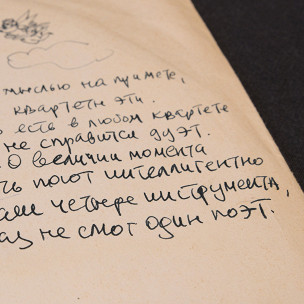 мыслью на примете,
квартеты эти.
есть в любом квартете
не справится дуэт.
О величии момента
поют интеллигентно
четыре инструмента,
не смог один поэт.